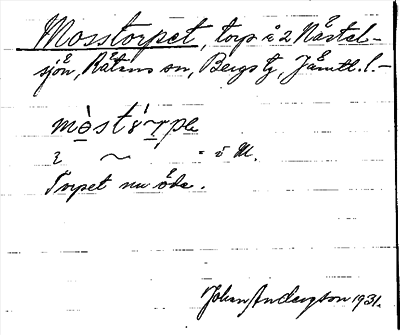 Mosstorpet, torp å 2 Nästel-
sjön, Rätans sn, Bergs tg, Jämtl. l.-
i ~ = i M.
Torpet nu öde.
Johan Andersson 1931.